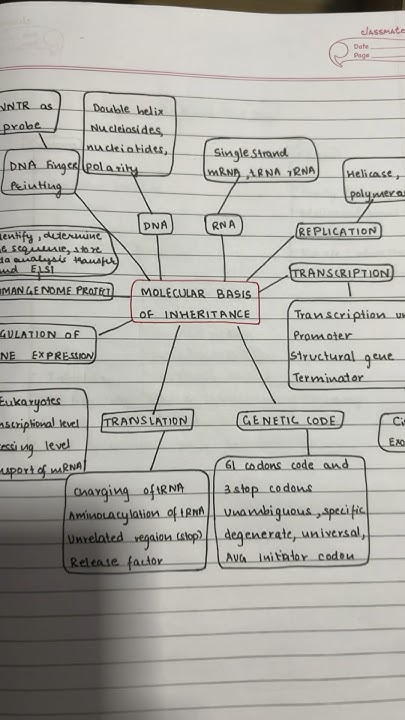 classmate
Date
Page
VNTR as
probe
DNA Finger
Printing
Double helix
Nucleosides,
nucleotides,
polarity
Single strand
mRNA, tRNA rRNA
Helicase,
polymera
DNA
RNA
REPLICATION
entify, determine
e sequence, store
ta analysis transfer
and ELSI
MAN GENOME PROJECT
MOLECULAR BASIS
OF INHERITANCE
TRANSCRIPTION
Transcription u
Promoter
Structural gene
Terminator
GULATION OF
NE EXPRESSION
Eukaryotes
nscriptional level
essing level
nsport of mRNA
TRANSLATION
GENETIC CODE
Ci
Exo
Charging of tRNA
Aminolacylation of tRNA
Unrelated regaion (stop)
Release factor
61 codons code and
3 stop codons
unambiguous, specific
degenerate, universal,
AUG initiator codon